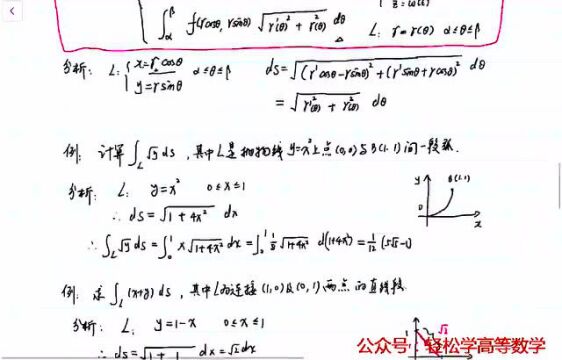 z = ω(t)
∫_α^β f(rcosθ, rsinθ) √(r'(θ)² + r²(θ)) dθ    L: r = r(θ)  α≤θ≤β
分析: L: { x = r cosθ  y = r sinθ  α≤θ≤β    ds = √((r'cosθ - rsinθ)² + (r'sinθ + rcosθ)²) dθ
= √(r'²(θ) + r²(θ)) dθ
例: 计算 ∫_L √y ds, 其中L是抛物线 y=x² 上点(0,0)与B(1,1)间一段弧.
分析: L: y = x²  0≤x≤1
y B(1,1)
0 x
∴ ds = √(1+4x²) dx
∴ ∫_L √y ds = ∫_0^1 x √(1+4x²) dx = ∫_0^1 1/8 √(1+4x²) d(1+4x²) = 1/12 (5√5 - 1)
例: 求 ∫_L (x+y) ds, 其中L为连接(1,0)及(0,1)两点的直线段.
分析: L: y = 1-x  0≤x≤1
∴ ds = √(1+1) dx = √2 dx
1 √2
公众号:轻松学高等数学